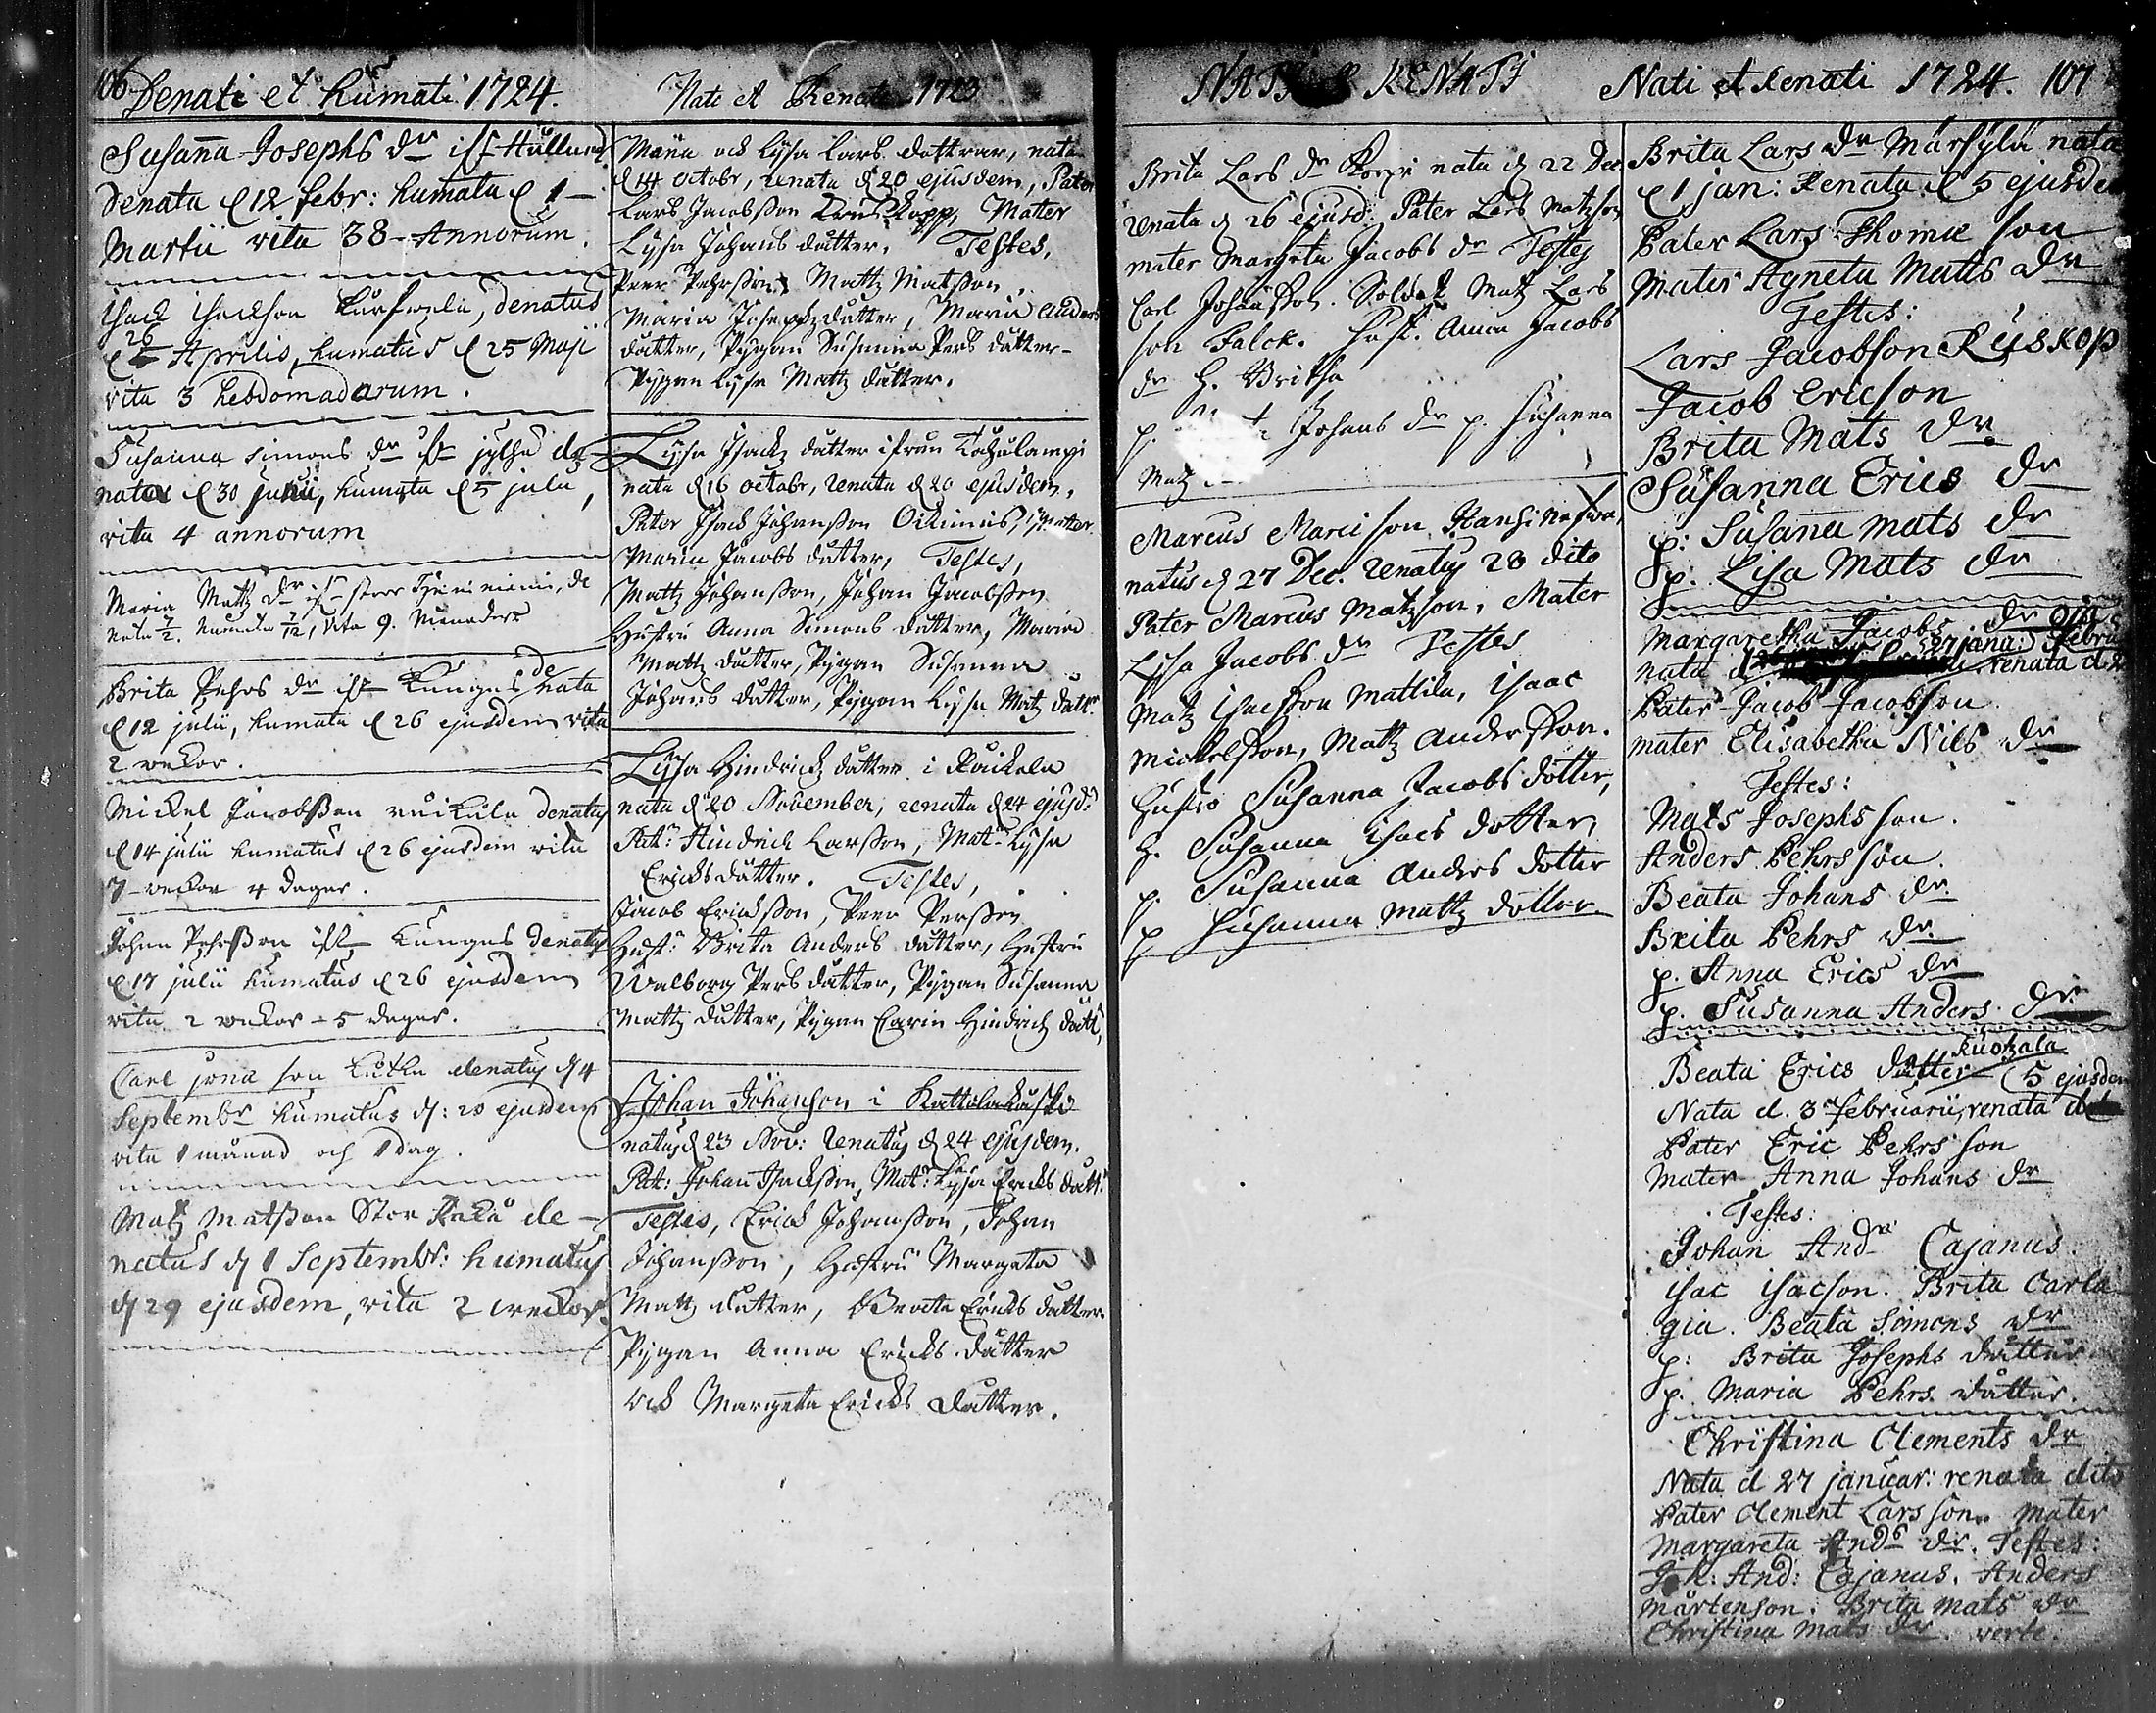 106 Denati et humati 1724.
Susanna Josephs dr
Denata d 12 febr: humata d 1
Martii vita 38 - Annorum.
Isack Isackson denatus
26
d Aprilis, humatus d 25 Maji
vita 3 hebdomadarum.
Susanna Simons dr de-
nata d 30 junii, humata d 5 julii,
vita 4 annorum
Maria Mattz dr de
nata 7/2. humata 7/12, vita 9. Månader
Brita Pehrs dr Kangas denata
d 12 julii, humata d 26 ejusdem vita
2 weckor.
Mickel Jacobsson denatus
d 14 julii humatus d 26 ejusdem vita
7 - weckor 4 dagar.
Johan Pehrsson Kangas denatus
d 17 julii humatus d 26 ejusdem
vita 2 weckor - 5 dagar.
Carl son denatus d 4
Septembr humatus d: 20 ejusdem
vita 1 månad och 1 dag.
Matz Matsson Stor de-
natus d 1 Septembr: humatus
d 29 ejusdem, vita 2 weckor.
Nati et Renati 1723
ock Lysa Lars dottrar, nata
d 14 octobr, renata d 20 ejusdem, Pater
Lars Jacobsson Matter
Lysa Johans dutter, Testes,
Peer Pehrsson, Mattz Matsson,
Maria Josephz dutter, Maria Anders
dutter, Pygan Susanna Pers dutter
Pygan Lysa Mattz dutter.
Lysa Isackz dutter ifrån
nata d 16 octobr, renata d 20 ejusdem,
Pater Isack Johansson Matter
Maria Jacobs dutter, Testes,
Mattz Johansson, Johan Jacobsson
Hustru Anna Simons dutter, Maria
Mattz dutter, Pygan Susanna
Johans dutter, Pygan Lysa Matz dutt.
Lysa Hindrickz dutter i
nata d 20 November, renata d 24 ejusd:
Pat: Hindrick Larsson, Mat: Lysa
Ericks dutter. Testes,
Jacob Ericksson, Peer Persson
Hust: Brita Anders dutter, Hustru
Walborg Pers dutter, Pygan Susanna
Mattz dutter, Pygan Carin Hindrich dutt,
Johan Johanson i
natus d 23 Nov: renatus d 24 ejusdem.
Pat: Johan Isacksson, Mat: Lysa Ericks dutt.
Testes, Erick Johansson, Johan
Johansson, Hustru Margeta
Mattz dutter, Beata Ericks dutter.
Pygan Anna Ericks dutter
ock Margeta Ericks dutter.
NATI RENATI
Brita Lars dr nata d 22 Dec
renata d 26 ejusd: Pater Lars Matzson
mater Margeta Jacobs dr Testes
Carl Johansson. Soldat Matz Lars
son Falck. hust. Anna Jacobs
dr H. Britha
p. Johans dr p. Susanna
Matz
Marcus Marcison
natus d 27 Dec. renatus 28 dito
Pater Marcus Matzson, Mater
Lysa Jacobs dr Testes
Matz Isacsson Mattila, Isaac
Mickelsson, Mattz Andersson.
Hustro Susanna Jacobs dotter,
H. Susanna Isacs dotter,
p. Susanna Anders dotter
p Susanna Mattz dotter
Nati et Renati 1724. 107
Brita Lars dr nata
d 1 jan: Renata d 5 ejusdem
Pater Lars Thomæ son
Mater Agneta Matts dr
Testes:
Lars Jacobson Ryskop
Jacob Ericson
Brita Mats dr
Susanna Erics dr
p: Susana Mats dr
p. Lisa Mats dr
Margaretha Jacobs dr
27 janu: febru
nata d renata d 2
Pater Jacob Jacobson
mater Elisabetha Nils dr
Testes:
Mats Josephsson.
Anders Pehrsson.
Beata Johans dr
Brita Pehrs dr
p. Anna Erics dr
p. Susanna Anders dr
Beata Erics datter
5 ejusdem
Nata d. 3 februarii, renata d
Pater Eric Pehrs son
Mater Anna Johans dr
Testes:
Johan And: Cajanus.
isac isacson. Brita Carla
gia. Beata Simons dr
p: Brita Josephs datter
p. Maria Pehrs datter.
Christina Clements dr
Nata d 27 januar: renata dito
Pater Clement Larsson. mater
Margareta Ands dr. Testes:
Joh: And: Cajanus. Anders
Mårtenson. Brita Mats dr
Christina Mats dr. verte.